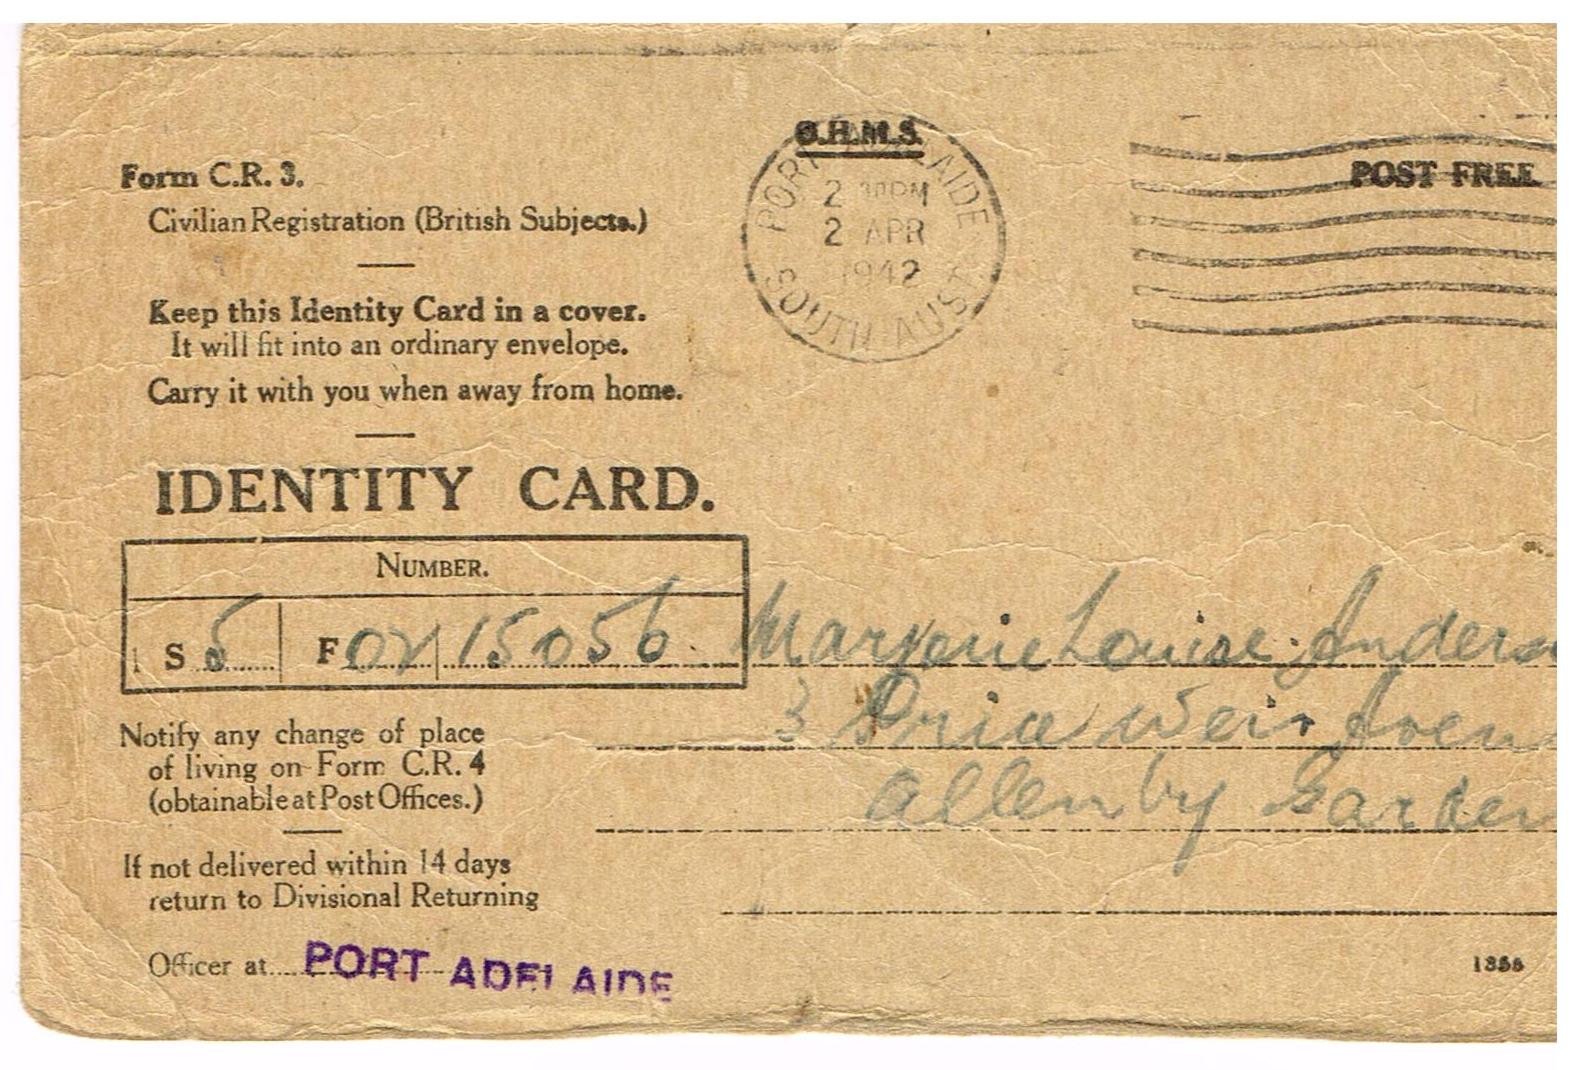 O.H.M.S.
POST FREE
PORT ADELAIDE
2 30PM
2 APR
1942
SOUTH AUST
Form C.R. 3.
Civilian Registration (British Subjects.)
Keep this Identity Card in a cover.
It will fit into an ordinary envelope.
Carry it with you when away from home.
IDENTITY CARD.
NUMBER.
S 5 F 02 15056
Marjorie Louise Anders
3 Price Weir Aven
Allenby Garden
Notify any change of place
of living on Form C.R. 4
(obtainable at Post Offices.)
If not delivered within 14 days
return to Divisional Returning
Officer at PORT ADELAIDE